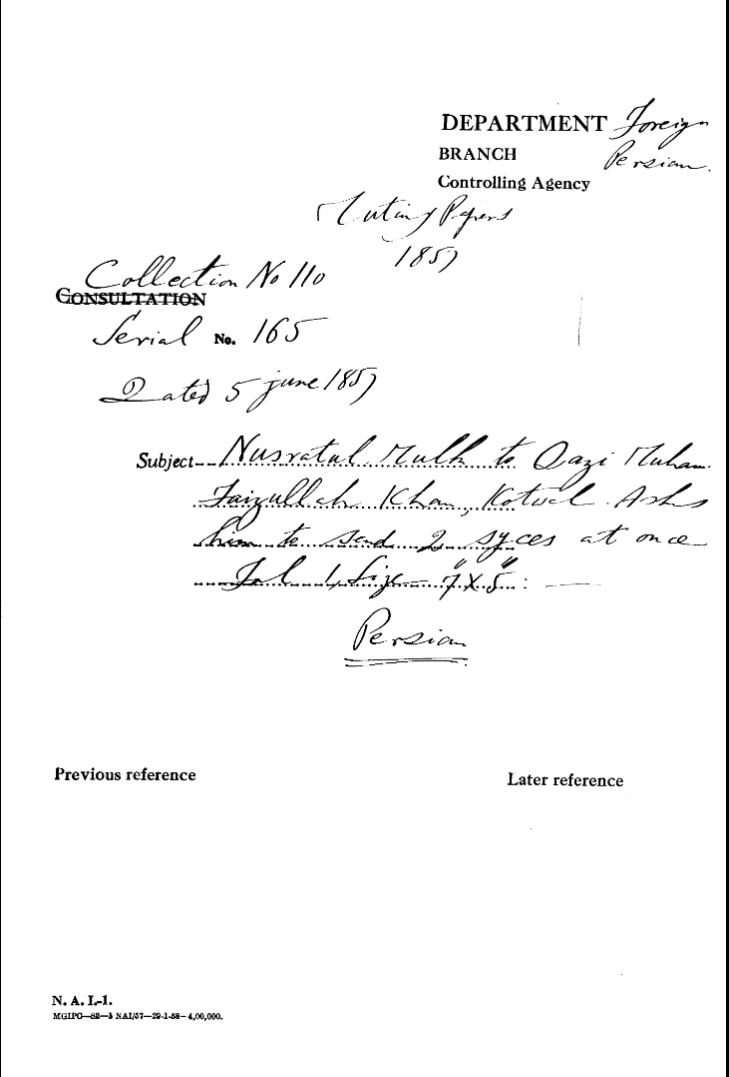 DEPARTMENT Foreign
BRANCH Persian.
Controlling Agency
Mutiny Papers
1857
Collection No 110
CONSULTATION
Serial No. 165
Dated 5 june 1857
Subject Nusratul Mulk to Qazi Muham.
Faizullah Khan, Kotwal. Asks
him to send 2 syces at once
Fol 1, Size – 7" X 5" : —
Persian
Previous reference
Later reference
N. A. I.-1.
MGIPC—S2—3 NAI/57—29-1-58—4,00,000.